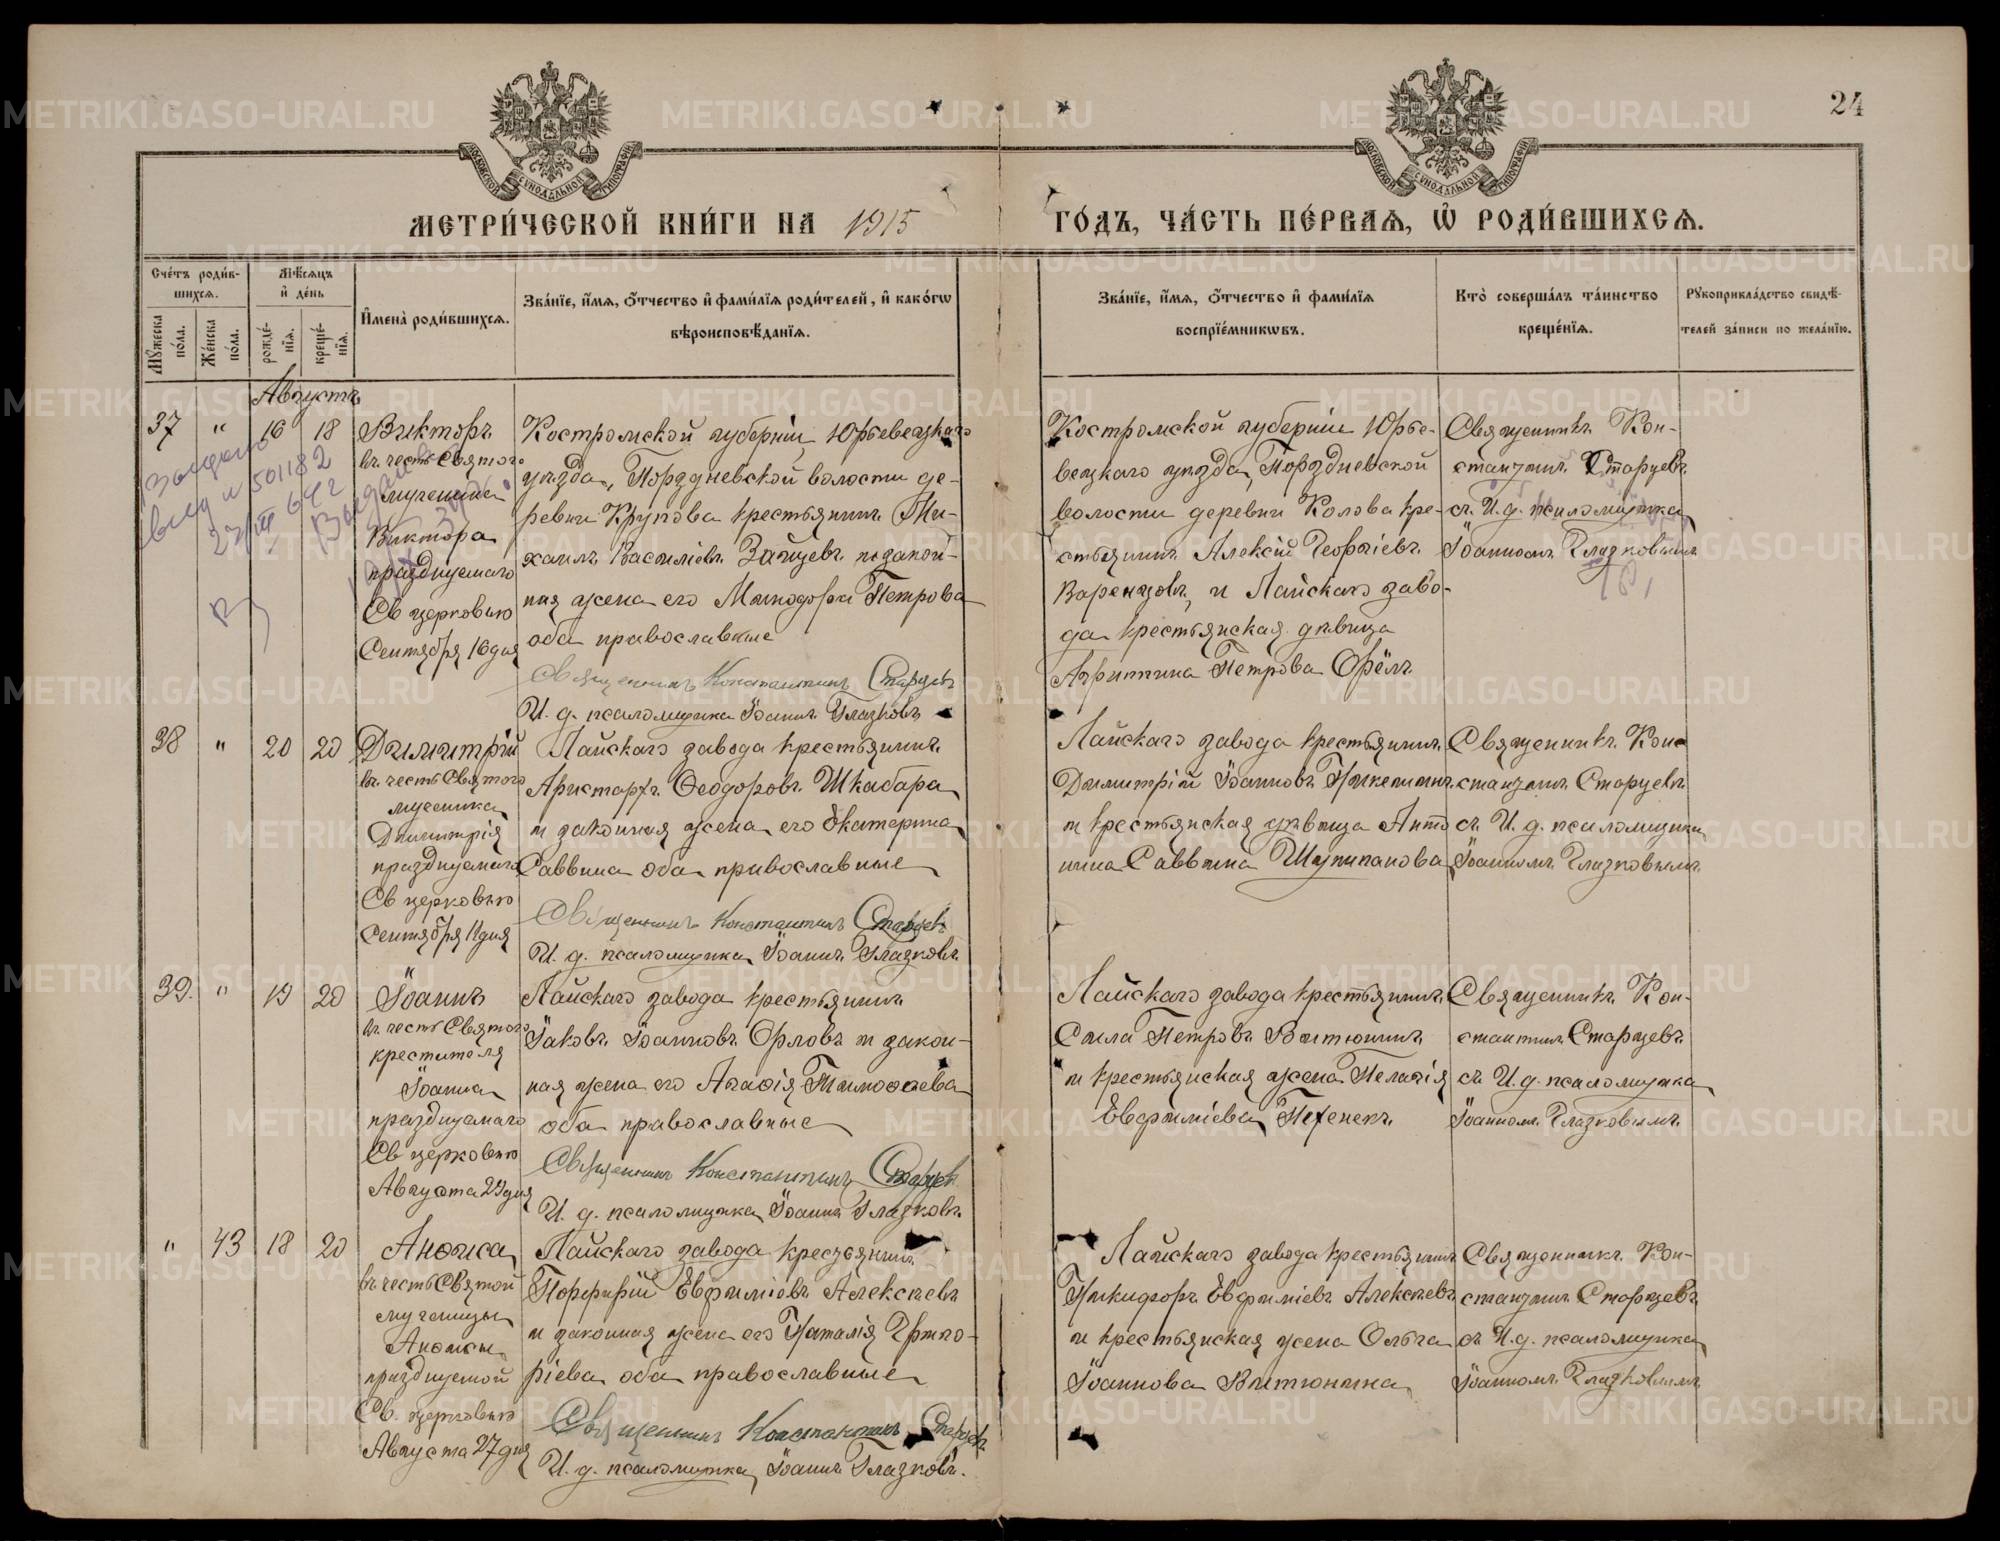 24
МОСКОВСКОЙ СѴНОДАЛЬНОЙ ТИПОГРАФІИ
МОСКОВСКОЙ СѴНОДАЛЬНОЙ ТИПОГРАФІИ
МЕТРИ́ЧЕСКОЙ КНИ́ГИ НА 1915 ГО́ДЪ, ЧА́СТЬ ПЕ́РВАЯ, Ѡ҆ РОДИ́ВШИХСЯ.
Сче́тъ роди́в-
шихся.
Мѣ́сяцъ
и҆ де́нь
Мꙋ́жеска по́ла.
Же́нска по́ла.
рожде́-
нїя.
креще́-
нїя.
И҆мена̀ роди́вшихся.
Зва́нїе, и҆́мя, ѻ҆́тчество и҆ фами́лїя роди́телей, и҆ како́гѡ
вѣроисповѣ́данїя.
Зва́нїе, и҆́мя, ѻ҆́тчество и҆ фами́лїя
воспрїе́мникѡвъ.
Кто̀ соверша́лъ та́инство
креще́нїя.
Рꙋкоприкла́дство свидѣ́-
телей за́писи по жела́нїю.
Августъ
37 " 16 18
Викторъ
въ честь Святого
мученика
Виктора
празднуемаго
Св церковью
Сентября 16 дня
Костромской губерніи, Юрьевецкаго
уѣзда, Порздневской волости де-
ревни Крутова крестьянинъ Ми-
хаилъ Василіевъ Зайцевъ и закон-
ная жена его Минодора Петрова
оба православные
Священникъ Константинъ Старцевъ
И. д. псаломщика Іоаннъ Глазковъ
Костромской губерніи Юрье-
вецкаго уѣзда, Порздневской
волости деревни Колова кре-
стьянинъ Алексій Георгіевъ
Варенцовъ, и Лайскаго заво-
да крестьянская дѣвица
Агриппина Петрова Орёлъ
Священникъ Кон-
стантинъ Старцевъ
съ И. д. псаломщика
Іоанномъ Глазковымъ
501182
38 " 20 20
Димитрій
въ честь Святого
мученика
Димитрія
празднуемаго
Св церковью
Сентября 11 дня
Лайскаго завода крестьянинъ
Аристархъ Ѳеодоровъ Шкабара
и законная жена его Екатерина
Саввина оба православные
Священникъ Константинъ Старцевъ
И. д. псаломщика Іоаннъ Глазковъ
Лайскаго завода крестьянинъ
Димитрій Іоанновъ
и крестьянская дѣвица Анто
нина Саввина
Священникъ Кон
стантинъ Старцевъ
съ И. д. псаломщика
Іоанномъ Глазковымъ
39. " 19 20
Іоаннъ
въ честь Святого
крестителя
Іоанна
празднуемаго
Св церковью
Августа 29 дня
Лайскаго завода крестьянинъ
Іаковъ Іоанновъ Орловъ и закон-
ная жена его Агаѳія Тимоѳеева
оба православные
Священникъ Константинъ Старцевъ
И. д. псаломщика Іоаннъ Глазковъ
Лайскаго завода крестьянинъ
Сила Петровъ Витюнинъ
и крестьянская жена Пелагія
Евфиміева
Священникъ Кон-
стантинъ Старцевъ
съ И. д. псаломщика
Іоанномъ Глазковымъ
" 43 18 20
Анѳиса
въ честь Святой
мученицы
Анѳисы
празднуемой
Св. церковью
Августа 27 дня
Лайскаго завода крестьянинъ
Порфирій Евфиміевъ Алексѣевъ
и законная жена его Наталія Григо-
ріева оба православные
Священникъ Константинъ Старцевъ
И. д. псаломщика Іоаннъ Глазковъ.
Лайскаго завода крестьянинъ
Никифоръ Евфиміевъ Алексѣевъ
и крестьянская жена Ольга
Іоаннова Витюнина
Священникъ Кон-
стантинъ Старцевъ
съ И. д. псаломщика
Іоанномъ Глазковымъ
METRIKI.GASO-URAL.RU